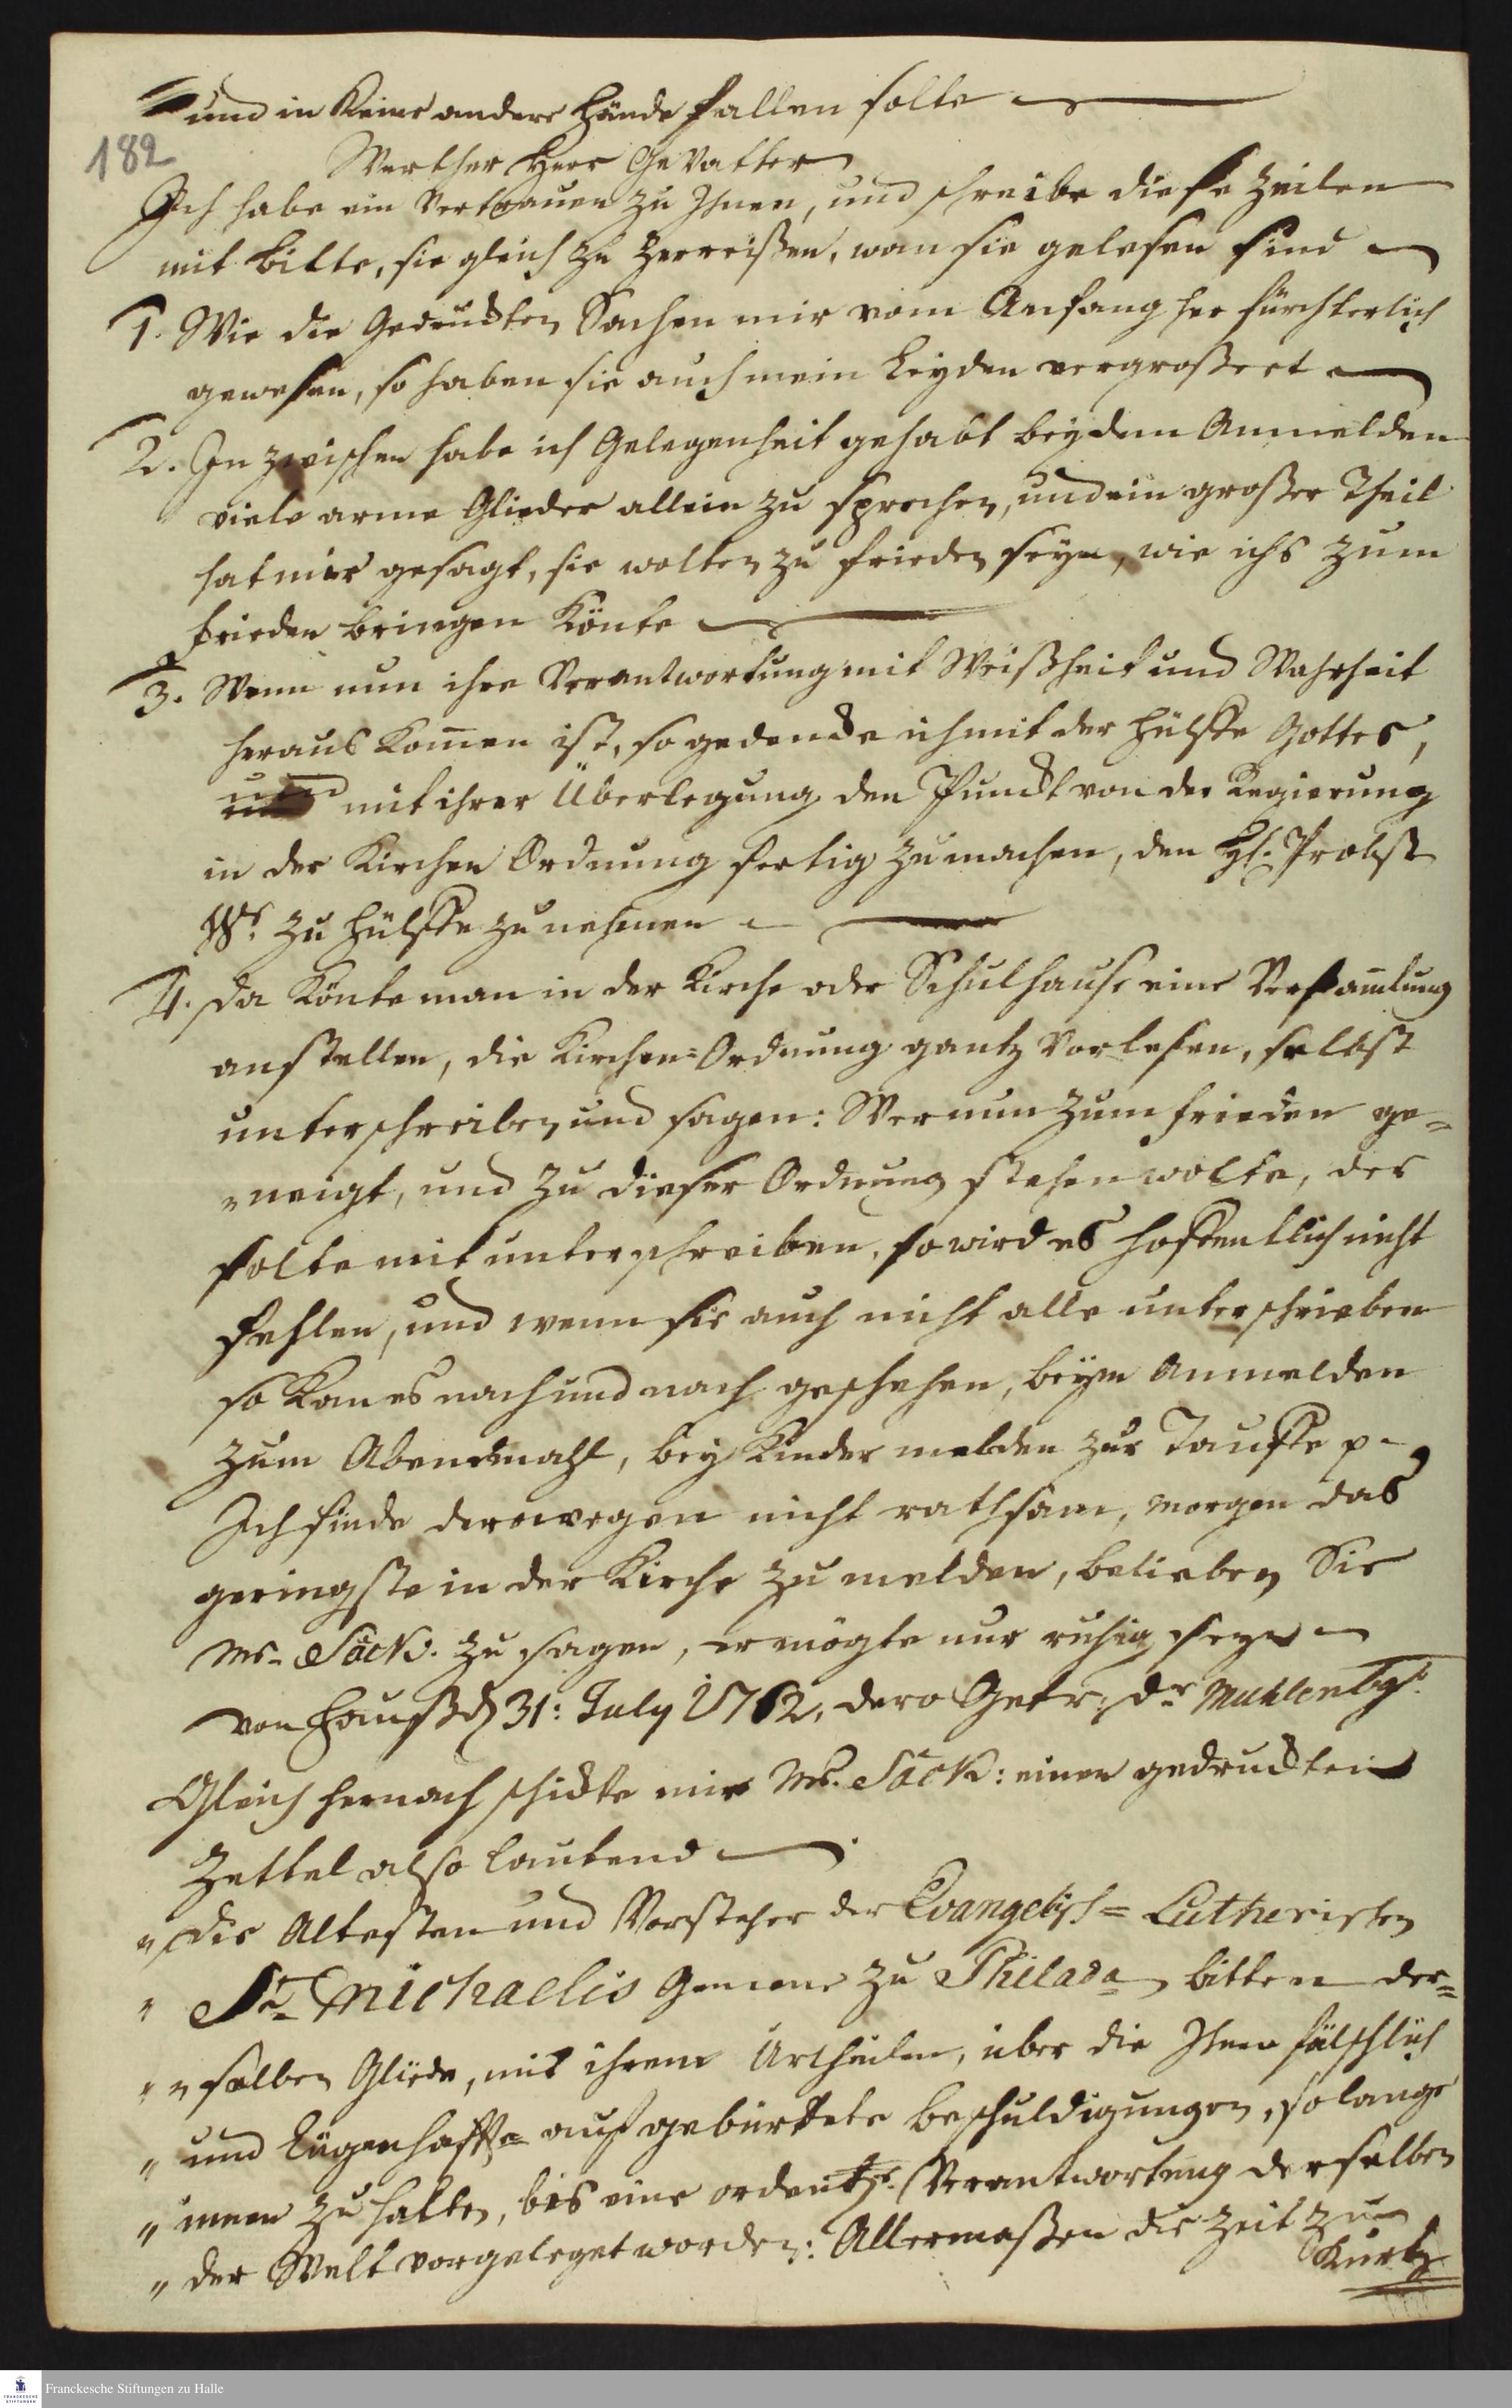 und in keine andere Hände fallen solte
182
Werther Herr GeVatter
Ich habe ein Vertrauen zu Ihnen, und schreibe diese Zeilen
mit bitte, sie gleich zu zerreißen, wan sie gelesen sind
1. Wie die Gedruckten Sachen mir vom Anfang her fürchterlich
gewesen, so haben sie auch mein Leyden vergroßert
2. Inzwischen habe ich Gelegenheit gehabt bey dem Anmelden
viele arme Glieder allein zu sprechen, und ein großer Theil
hat mir gesagt, sie wolten zu frieden seyn, wie ichs zum
frieden bringen könte
3. Wenn nun ihre Verantwortung mit Weißheit und Wahrheit
heraus kom̄en ist, so gedencke ich mit der Hülffe Gottes,
und mit ihrer Überlegung den Punckt von der Regierung
in der Kirchen Ordnung fertig zu machen, den H. Probst
W. zu Hülffe zu nehmen
4. da könte man in der Kirche oder Schulhause eine Versam̄lung
anstellen, die Kirchen=Ordnung gantz vorlesen, selbst
unterschreiben und sagen: Wer nun zum frieden ge=
neigt, und zu dieser Ordnung stehen wolte, der
solte mit unterschreiben, so wird es hoffentlich nicht
fehlen, und wenn sie auch nicht alle unterschrieben
so kan es nach und nach geschehen, beym Anmelden
zum Abendmahl, bey Kinder melden zur Tauffe p
Ich finde derowegen nicht rathsam, morgen das
geringste in der Kirche zu melden, belieben Sie
Mr. Säck. zu sagen, er mögte nur ruhig seyn
von Hauß d 31: July 1762, dero Getr: dr Muhlenbg
Gleich hernach schickte mir Mr. Säck: einen gedruckten
Zettel also lautend
" die Altesten und Vorsteher der Evangelisch=Lutherischen
" St. Michaelis Gemeine zu Philada bitten der=
" selben Glieder, mit ihrem Urtheilen, über die Ihnen fälschlich
" und lügenhaffte aufgebürdete beschuldigungen, so lange
" innen zu halten, bis eine ordentl. Verantwortung derselben
" der Welt vorgeleget worden: Allermaßen die Zeit zu
kurtz
Franckesche Stiftungen zu Halle